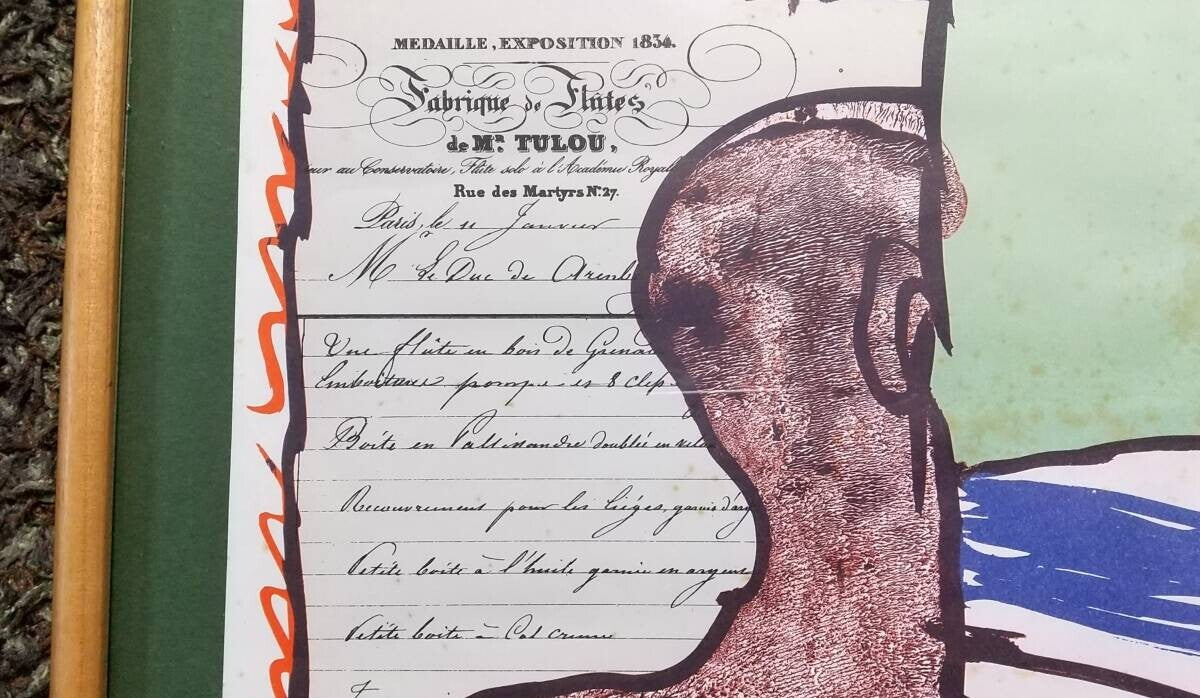 MEDAILLE, EXPOSITION 1834.
Fabrique de Flûtes
de Mr. TULOU,
eur au Conservatoire, Flûte solo à l'Académie Royal
Rue des Martyrs No. 27.
Paris, le 11 Janvier
Mr Le Duc de Arenb
Une flûte en bois de Grenad
Emboitures pompe et 8 clep
Boite en Palissandre doublée en velo
Recouvrement pour les liéges, garnis d'arg
Petite boite à l'huile garnie en argent
Petite boite à